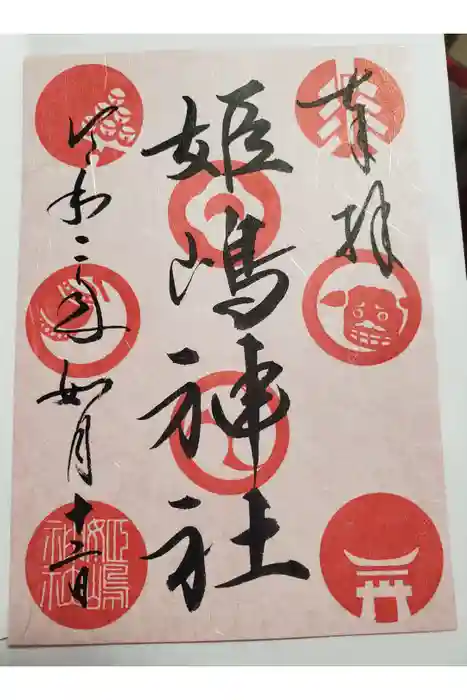 奉拝
姫嶋神社
令和二年如月十二日
姫嶋神社